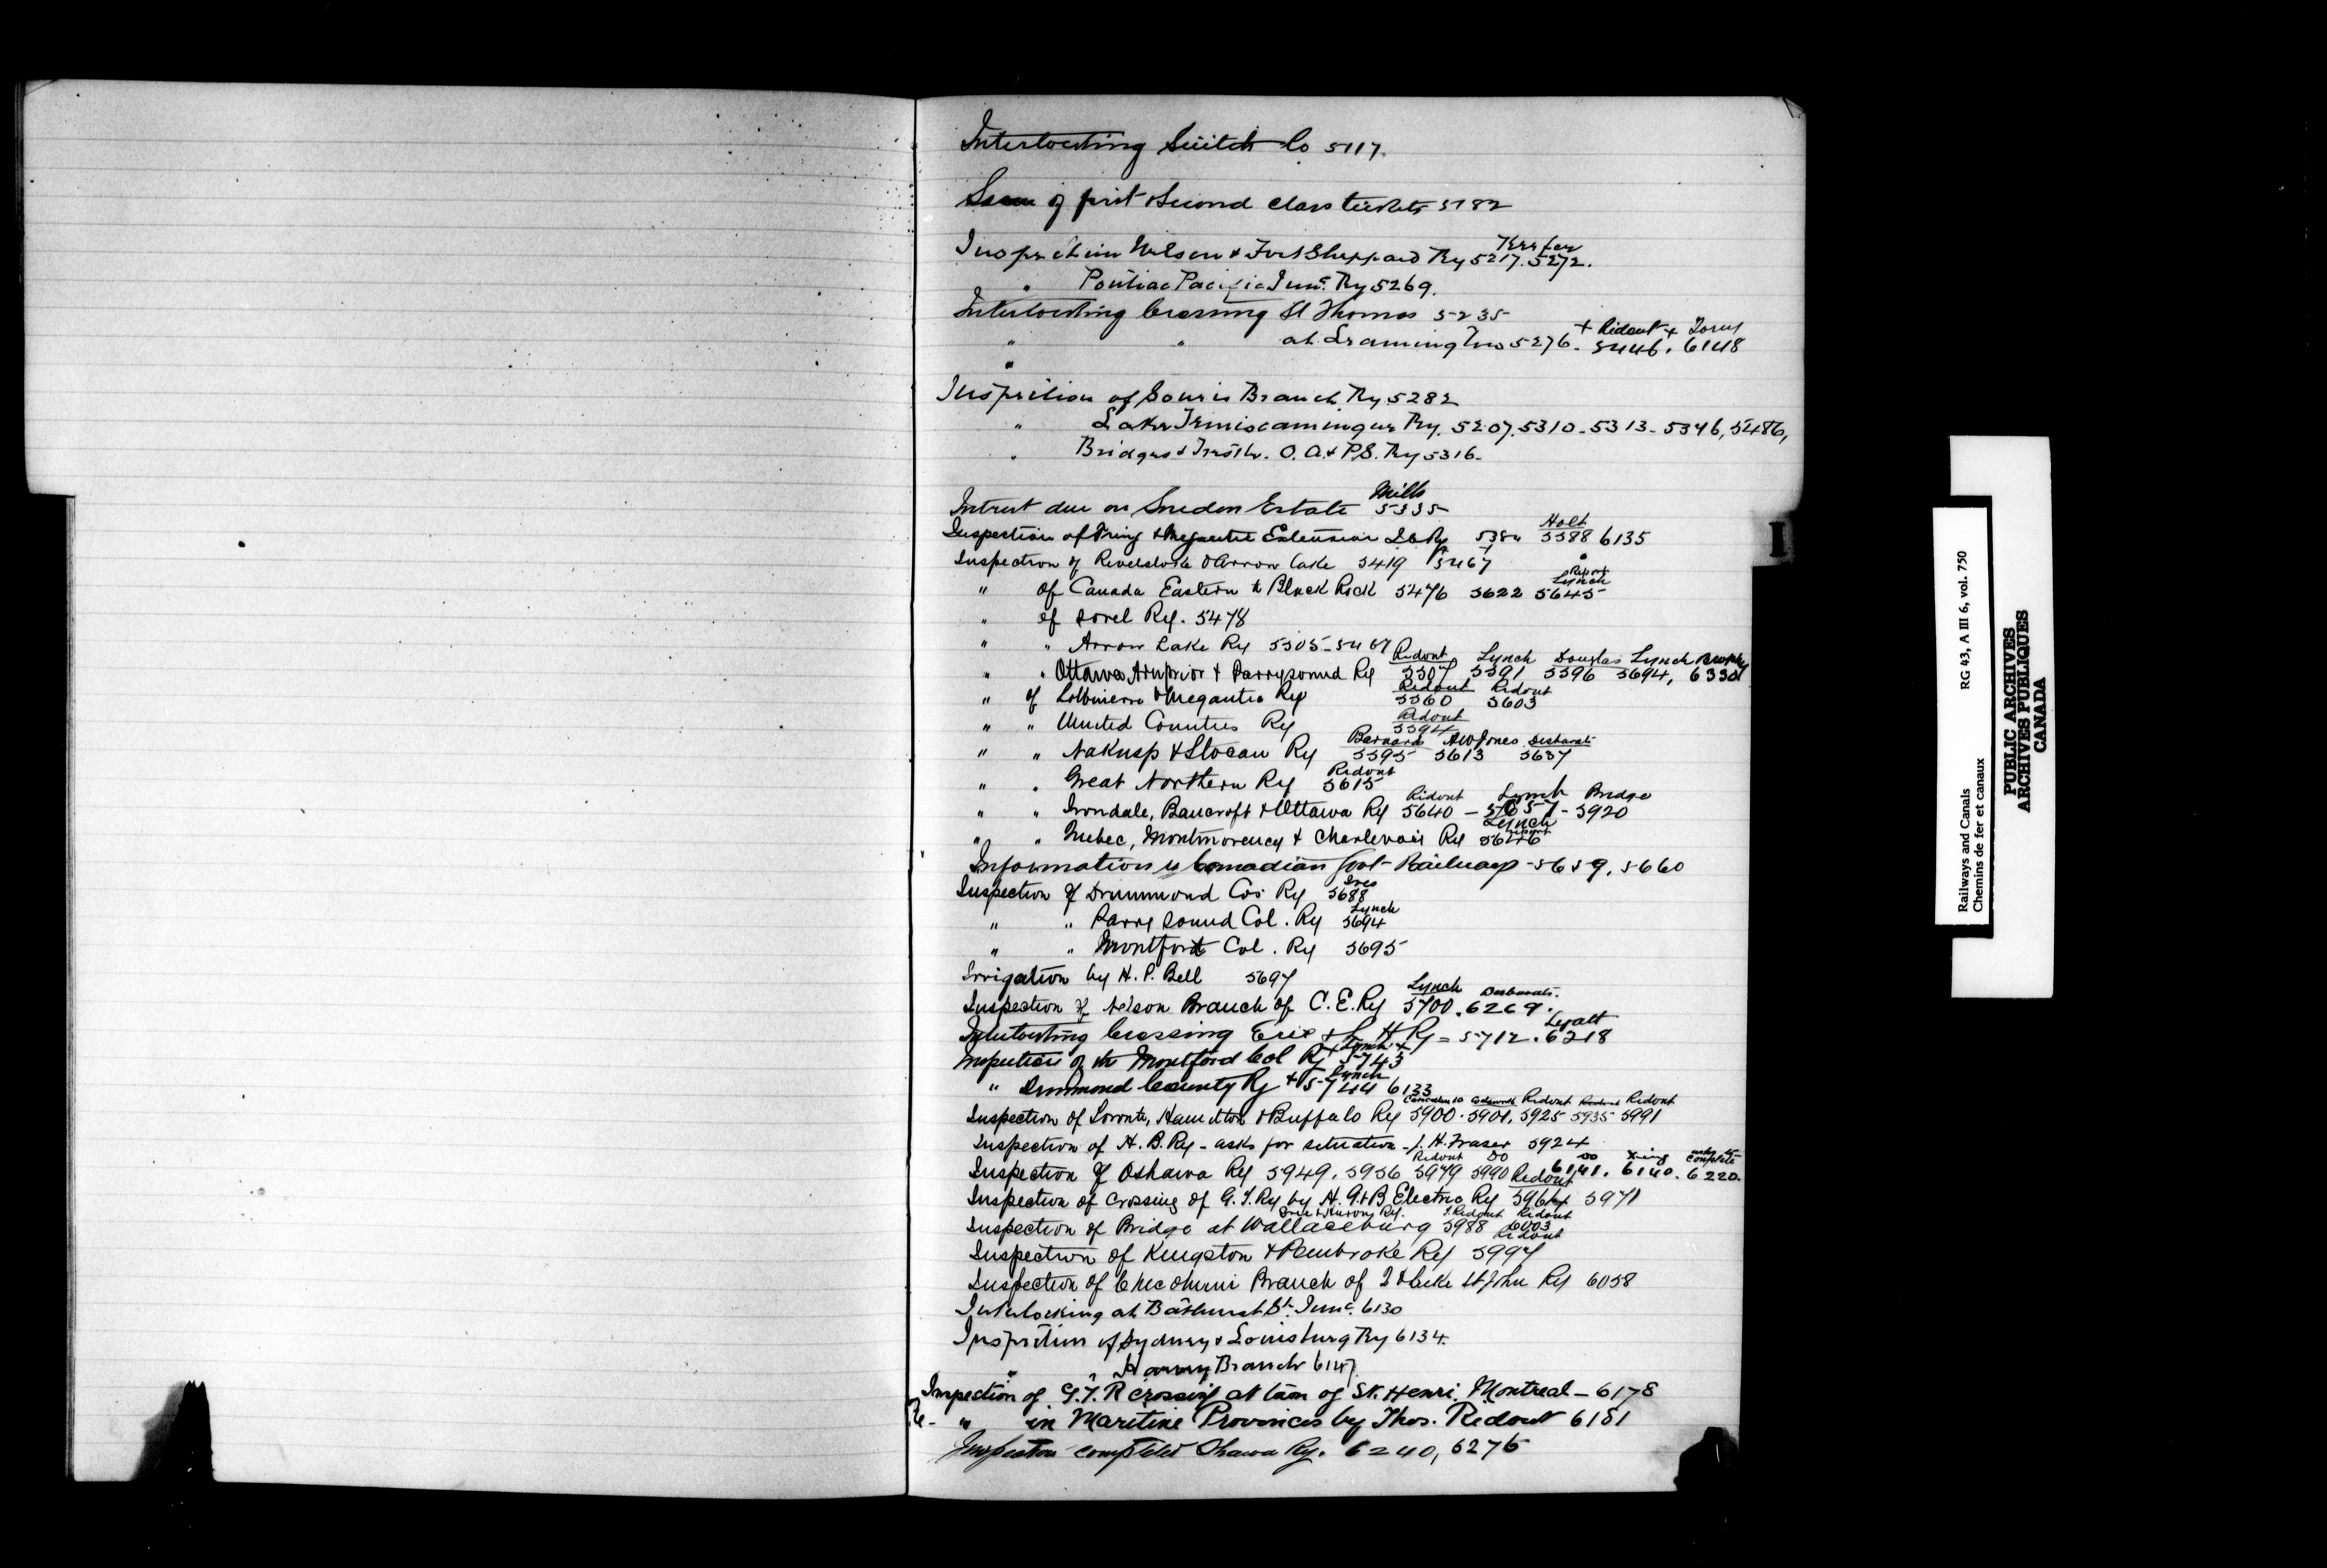 Interlocking Switch Co 5117.
Issue of first & Second class tickets 5182
Inspection Nelson & Fort Sheppard Ry 5217. 5272.
" Pontiac Pacific Junc. Ry 5269.
Interlocking Crossing St Thomas 5235
+ Ridout +
" " at Leamington 5276. 5446. 6148
"
Inspection of Souris Branch Ry 5282
" Lake Temiscamingue Ry. 5207. 5310 - 5313 - 5346, 5486,
" Bridges & Trestle. O. A. & P.S. Ry 5316.
Mills
Intrest due on Snedon Estate 5335
Holt
Inspection of Tring & Megantic Extension Ry 5588 6135
Inspection of Revelstoke & Arrow Lake 5419 5467
Report
Lynch
" of Canada Eastern to Black Rock 5476 5622 5645
" of Sorel Ry. 5478
" " Arrow Lake Ry 5505 - 5467
Ridout Lynch Douglas Lynch
" " Ottawa Arnprior & Parry sound Ry 5507 5591 5596 5694, 6330
Ridout Ridout
" of Lotbiniere & Megantic Ry 5560 5603
Ridout
" " United Counties Ry 5594
Barnard AW Jones Desbarats
" " Nakusp & Slocan Ry 5595 5613 5637
Ridout
" " Great Northern Ry 5615
Ridout Lynch Bridge
" " Irondale, Bancroft & Ottawa Ry 5640 - 5657 - 5920
Lynch
report
" " Quebec, Montmorency & Charlevoix Ry 5646
Information re Canadian Govt Railways - 5659, 5660
Ives
Inspection of Drummond Cos Ry 5688
Lynch
" " Parry Sound Col. Ry 5694
" " Montfort Col. Ry 5695
Irrigation by H. P. Bell 5697
Lynch Desbarats.
Inspection of Nelson Branch of C. E. Ry 5700. 6269.
Lyatt
Interlocking Crossing Erie & L. H Ry = 5712. 6218
+ Lynch +
Inspection of the Montford Col Ry 5743
Lynch
" Drummond County Ry + 5744 6133
Ridout Ridout
Inspection of Toronto, Hamilton & Buffalo Ry 5900. 5901, 5925 5935 5991
Inspection of H. B. Ry - asks for situation - J. H. Fraser 5924
Ridout Do Do X-ing
Inspection of Oshawa Ry 5949. 5956 5979 5990 6141. 6140. 6220.
Ridout
Inspection of crossing of G. T. Ry by H. G. & B Electric Ry 5964 5971
Erie & Huron Ry. T. Ridout Ridout
Inspection of Bridge at Wallaceburg 5988 6003
Ridout
Inspection of Kingston & Pembroke Ry 5997
Inspection of Chicoutimi Branch of Q & Lake St John Ry 6058
Interlocking at Bathurst St. Junc. 6130
Inspection of Sydney & Louisburg Ry 6134.
" " Harvey Branch 6147
Inspection of G. T. R crossing at town of St. Henri, Montreal - 6178
Re- " in Maritime Provinces by Thos. Ridout 6181
Inspection completed Oshawa Ry. 6240, 6276
I
Railways and Canals
Chemins de fer et canaux
RG 43, A III 6, vol. 750
PUBLIC ARCHIVES
ARCHIVES PUBLIQUES
CANADA